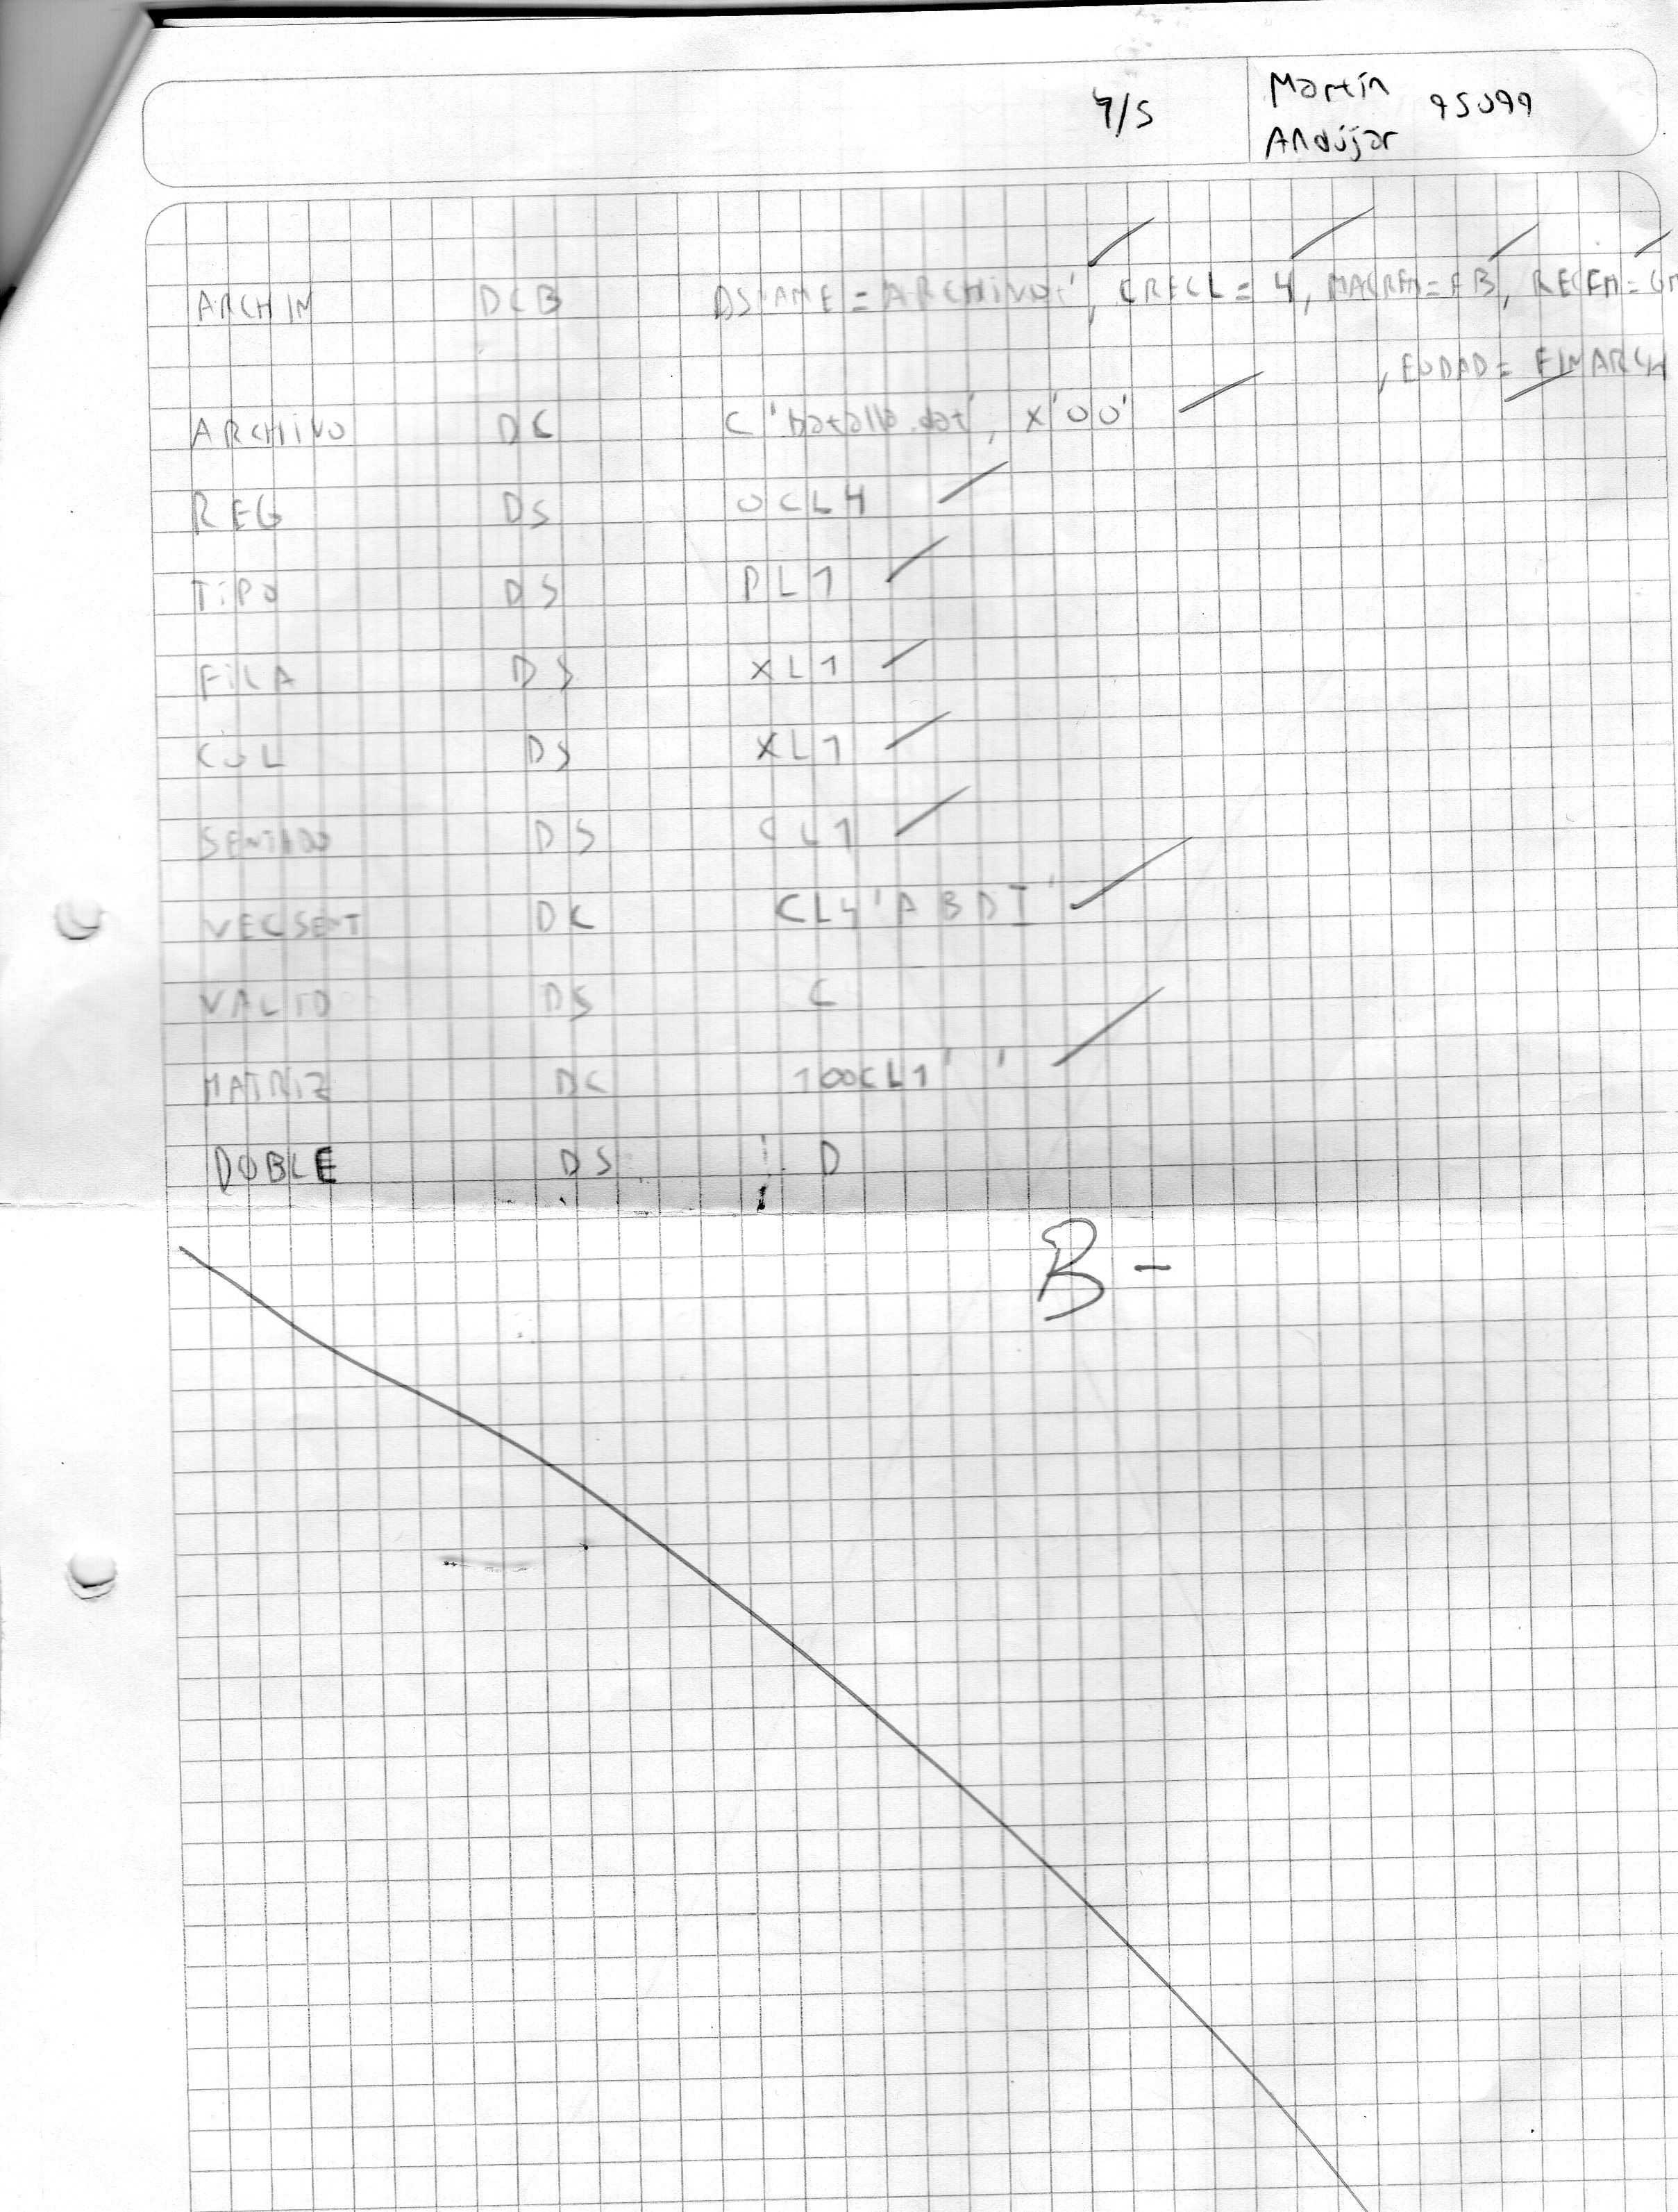 4/5
Martín
Andújar 95099
ARCHIN DCB DSNAME=ARCHIVO, LRECL=4, MACRFM=FB, RECFM=GM
, EODAD=FINARCH
ARCHIVO DC C'batalla.dat', X'00'
REG DS 0CL4
TIPO DS PL1
FILA DS XL1
COL DS XL1
SENTIDO DS CL1
VECSENT DC CL4'ABDI'
VALID DS C
MATRIZ DC 100CL1' '
DOBLE DS D
B-